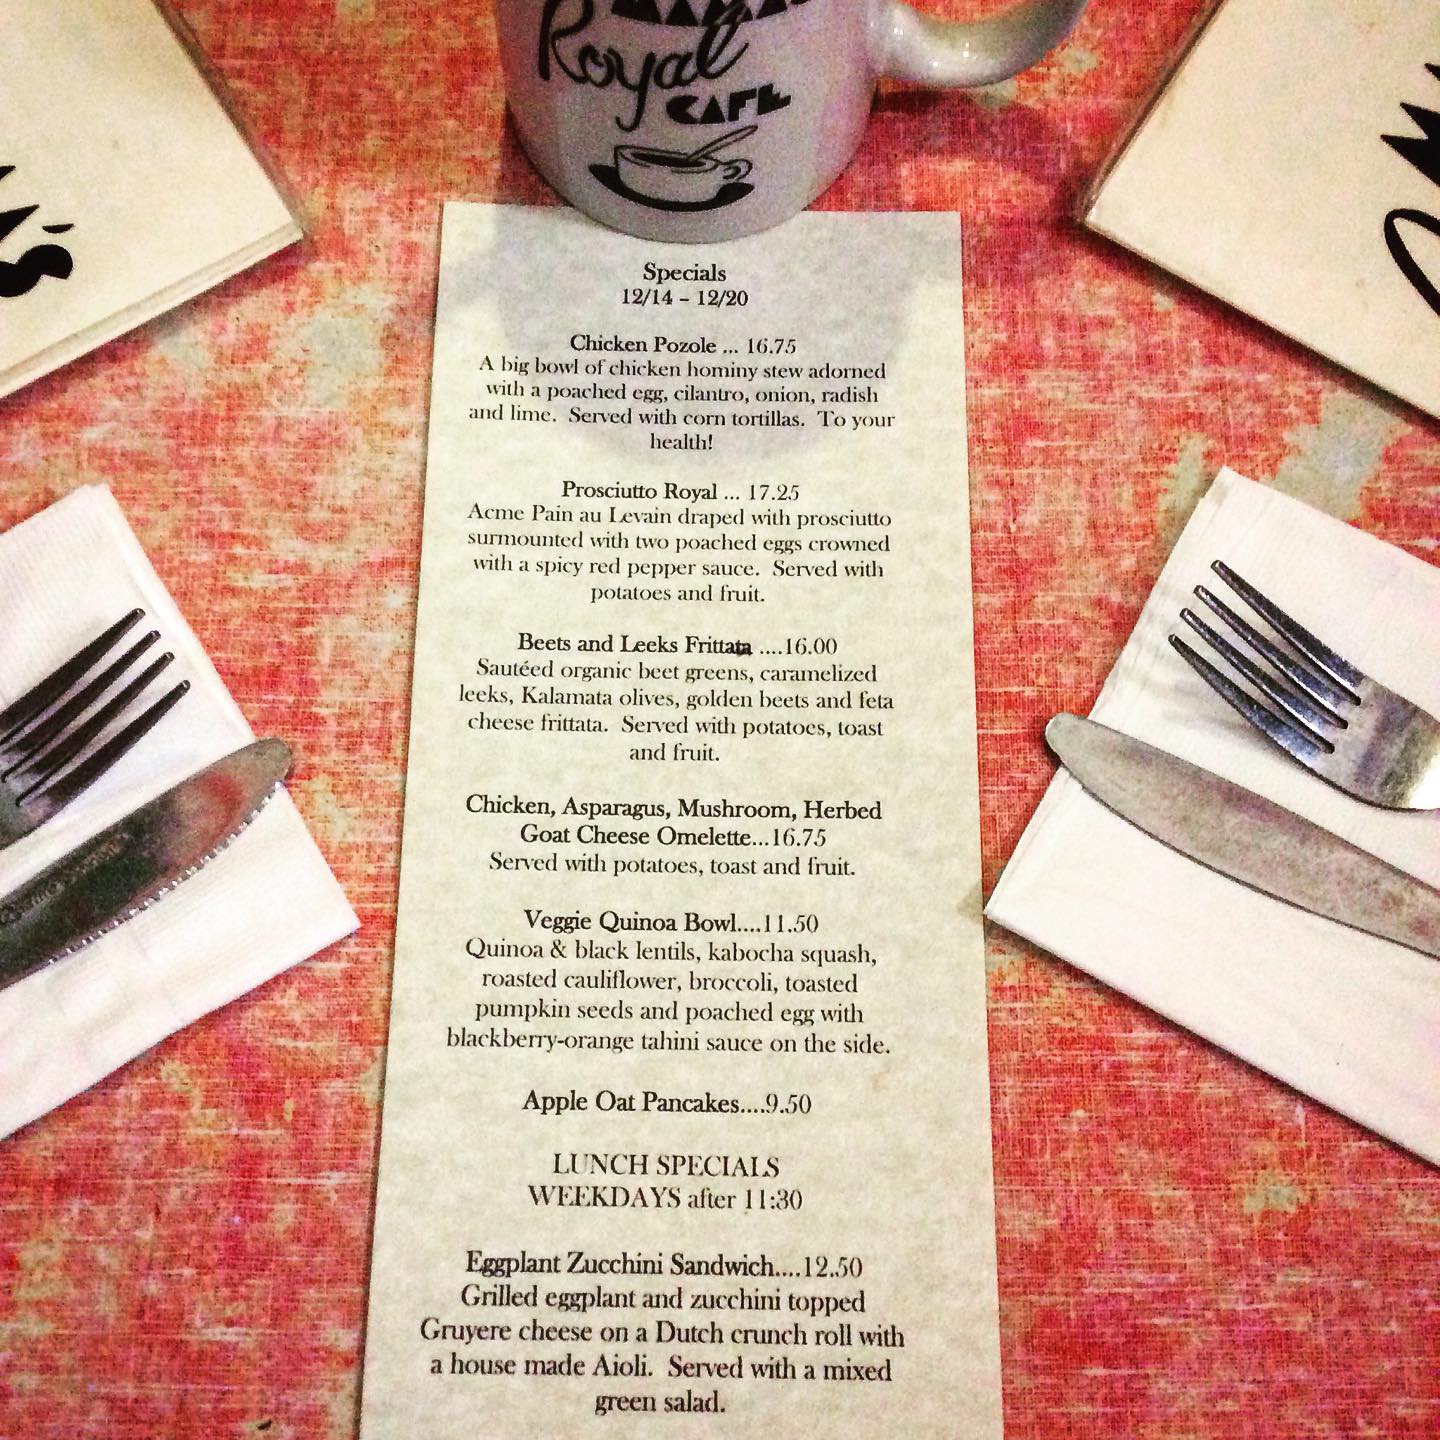 MAMA'S
Royal
CAFE
A's
Specials
12/14 – 12/20
Chicken Pozole ... 16.75
A big bowl of chicken hominy stew adorned
with a poached egg, cilantro, onion, radish
and lime. Served with corn tortillas. To your
health!
Prosciutto Royal ... 17.25
Acme Pain au Levain draped with prosciutto
surmounted with two poached eggs crowned
with a spicy red pepper sauce. Served with
potatoes and fruit.
Beets and Leeks Frittata ....16.00
Sautéed organic beet greens, caramelized
leeks, Kalamata olives, golden beets and feta
cheese frittata. Served with potatoes, toast
and fruit.
Chicken, Asparagus, Mushroom, Herbed
Goat Cheese Omelette...16.75
Served with potatoes, toast and fruit.
Veggie Quinoa Bowl....11.50
Quinoa & black lentils, kabocha squash,
roasted cauliflower, broccoli, toasted
pumpkin seeds and poached egg with
blackberry-orange tahini sauce on the side.
Apple Oat Pancakes....9.50
LUNCH SPECIALS
WEEKDAYS after 11:30
Eggplant Zucchini Sandwich....12.50
Grilled eggplant and zucchini topped
Gruyere cheese on a Dutch crunch roll with
a house made Aioli. Served with a mixed
green salad.